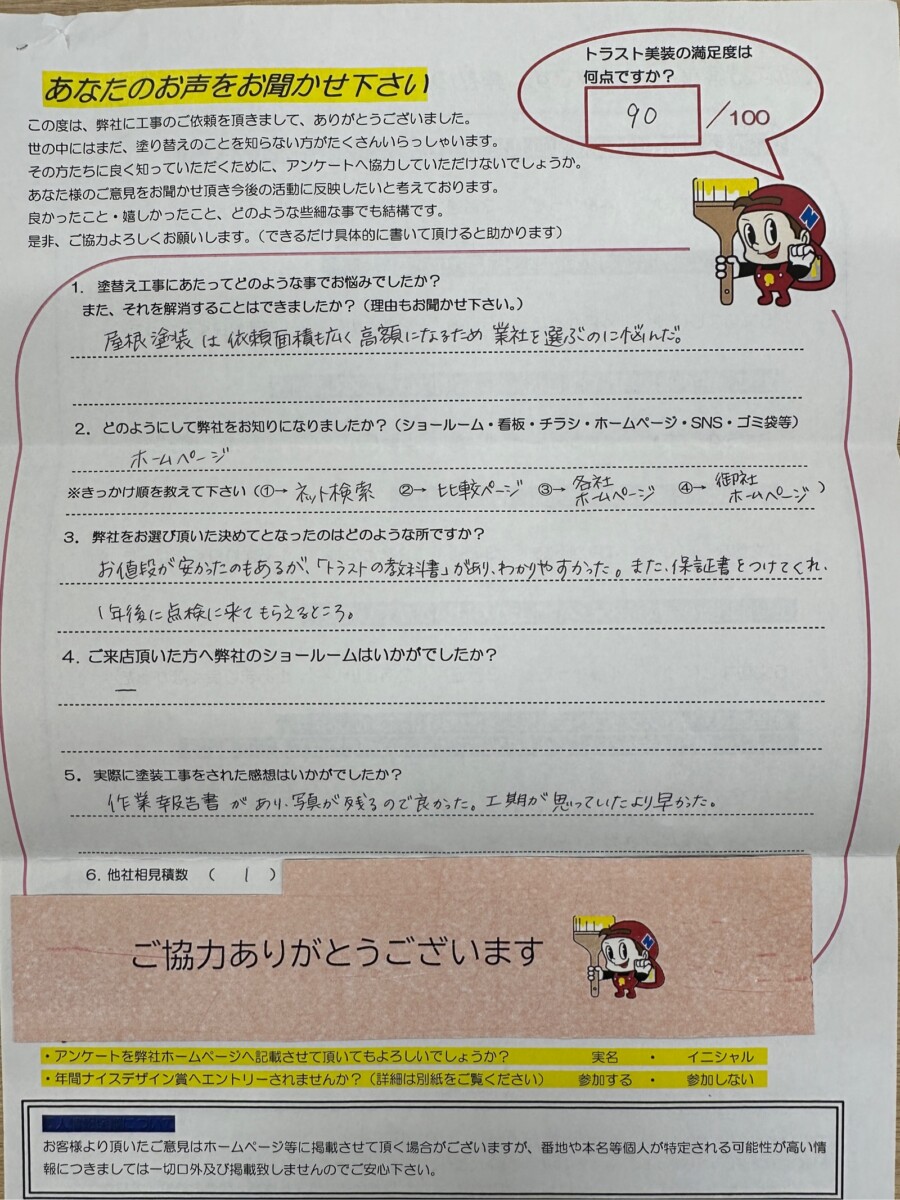 トラスト美装の満足度は
何点ですか？
90 ／100
あなたのお声をお聞かせ下さい
この度は、弊社に工事のご依頼を頂きまして、ありがとうございました。
世の中にはまだ、塗り替えのことを知らない方がたくさんいらっしゃいます。
その方たちに良く知っていただくために、アンケートへ協力していただけないでしょうか。
あなた様のご意見をお聞かせ頂き今後の活動に反映したいと考えております。
良かったこと・嬉しかったこと、どのような些細な事でも結構です。
是非、ご協力よろしくお願いします。（できるだけ具体的に書いて頂けると助かります）
1. 塗替え工事にあたってどのような事でお悩みでしたか？
また、それを解消することはできましたか？（理由もお聞かせ下さい。）
屋根塗装は依頼面積も広く高額になるため業社を選ぶのに悩んだ。
2. どのようにして弊社をお知りになりましたか？（ショールーム・看板・チラシ・ホームページ・SNS・ゴミ袋等）
ホームページ
※きっかけ順を教えて下さい（①→ ネット検索 ②→ 比較ページ ③→ 各社ホームページ ④→ 御社ホームページ ）
3. 弊社をお選び頂いた決めてとなったのはどのような所ですか？
お値段が安かったのもあるが、「トラストの教科書」があり、わかりやすかった。また、保証書をつけてくれ、
1年後に点検に来てもらえるところ。
4. ご来店頂いた方へ弊社のショールームはいかがでしたか？
―
5. 実際に塗装工事をされた感想はいかがでしたか？
作業報告書があり、写真が残るので良かった。工期が思っていたより早かった。
6. 他社相見積数 （ 1 ）
ご協力ありがとうございます
・アンケートを弊社ホームページへ記載させて頂いてもよろしいでしょうか？ 実名 ・ イニシャル
・年間ナイスデザイン賞へエントリーされませんか？（詳細は別紙をご覧ください） 参加する ・ 参加しない
お客様より頂いたご意見はホームページ等に掲載させて頂く場合がございますが、番地や本名等個人が特定される可能性が高い情
報につきましては一切口外及び掲載致しませんのでご安心下さい。